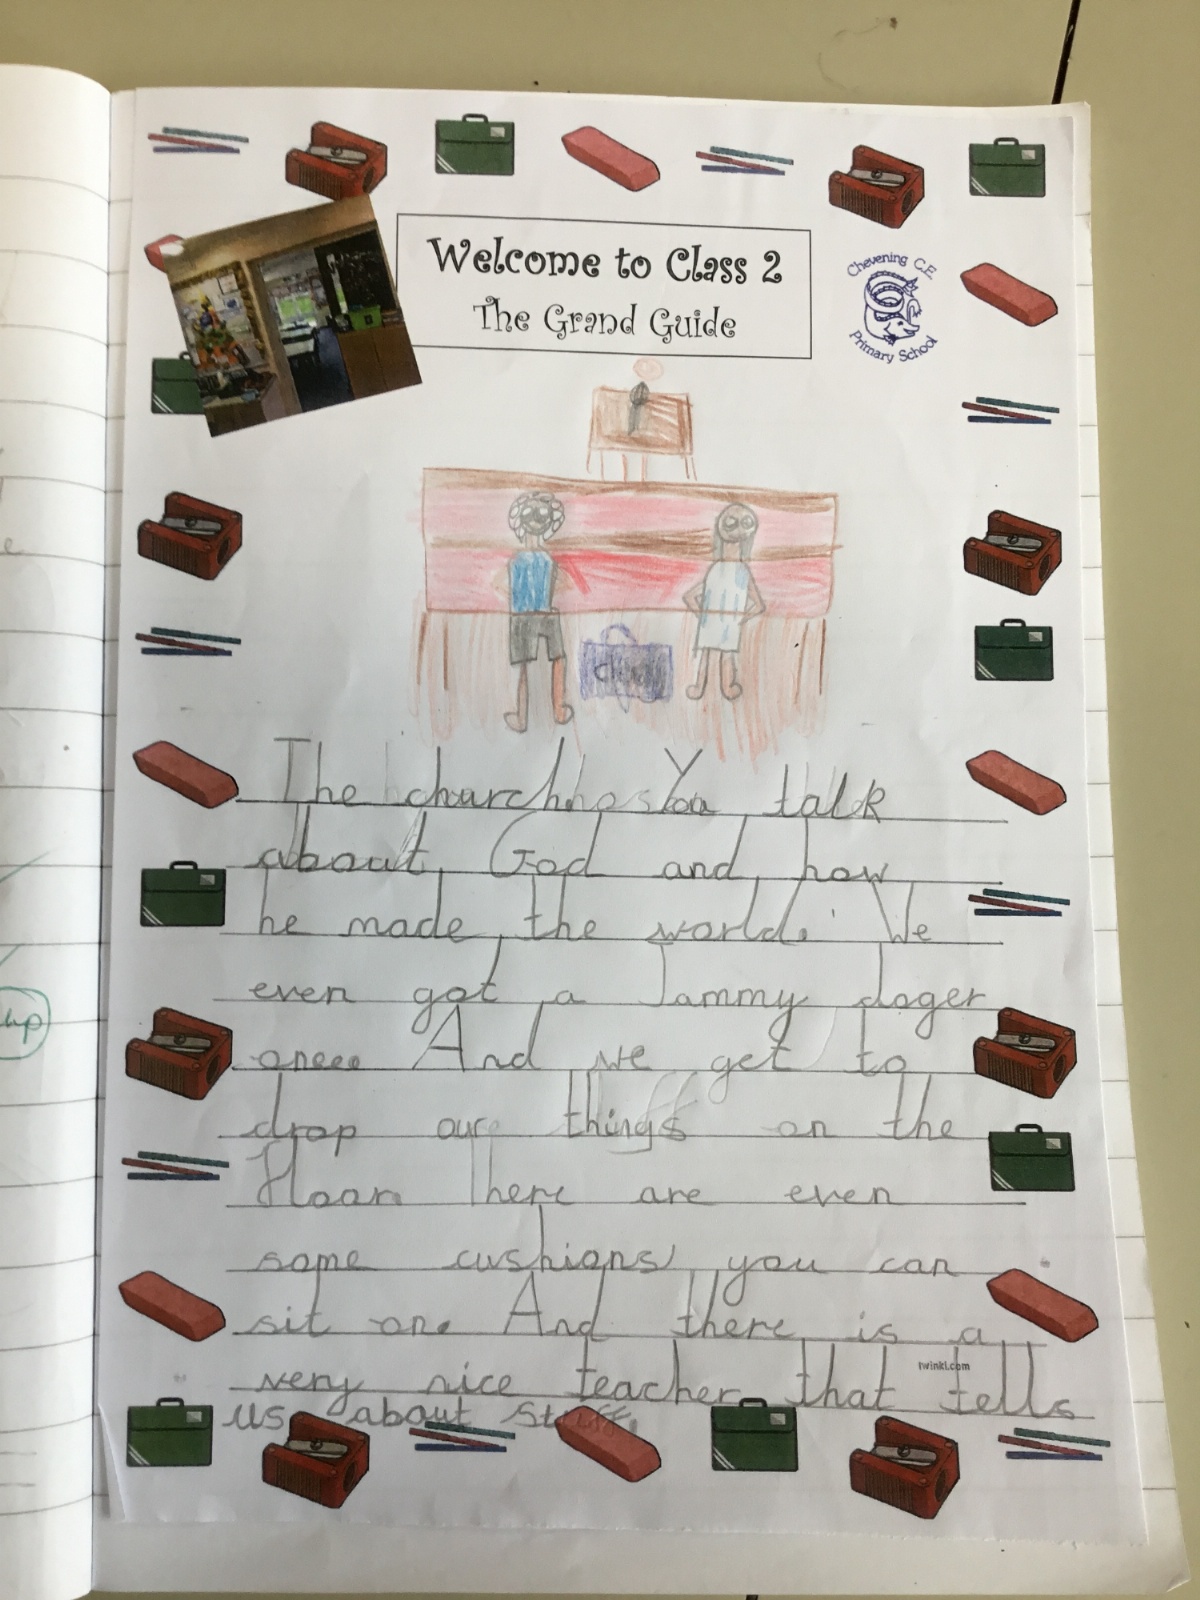 Welcome to Class 2
The Grand Guide
Chevening C.E.
Primary School
The church You talk
about God and how
he made the world. We
even got a Jammy doger
once And we get to
drop our things on the
floor. There are even
some cushions you can
sit on. And there is a
very nice teacher that tells
twinkl.com
us about stuff.